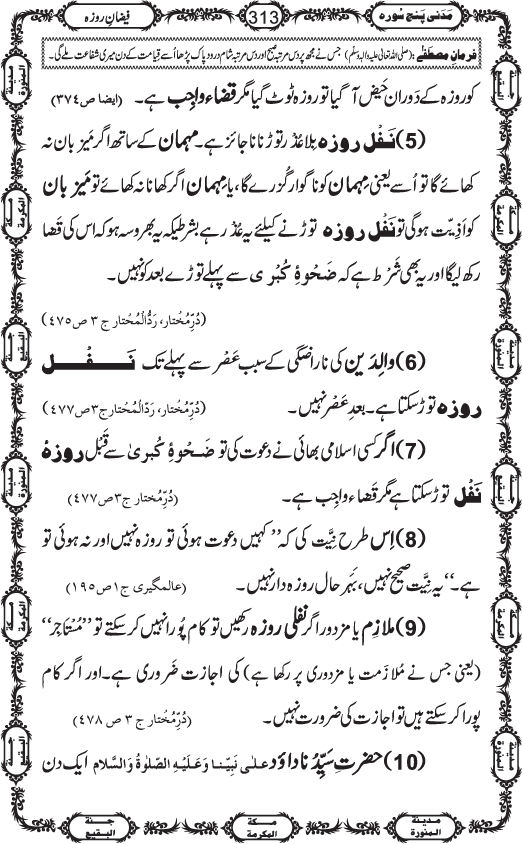 مَدَنی پنج سورہ
313
فیضانِ روزہ
فرمانِ مصطفٰے: (صلی اللہ تعالیٰ علیہ والہ وسلم) جس نے مجھ پر دس مرتبہ صبح اور دس مرتبہ شام درود پاک پڑھا اُسے قیامت کے دن میری شفاعت ملے گی۔
کو روزہ کے دَوران حَیض آ گیا تو روزہ ٹوٹ گیا مگر قضاء واجِب ہے۔ (ایضا ص۳۷۴)
(5) نَفْل روزہ بلا عُذْر توڑنا نا جائز ہے۔ مہمان کے ساتھ اگر مَیز بان نہ
کھائے گا تو اُسے یعنی مہمان کو نا گوار گُزرے گا، یا مہمان اگر کھانا نہ کھائے تو میز بان
کو اَذِیّت ہو گی تو نَفْل روزہ توڑنے کیلئے یہ عُذْر ہے بشرطیکہ یہ بھروسہ ہو کہ اس کی قضا
رکھ لیگا اور یہ بھی شَرْط ہے کہ ضَحْوَۂ کُبْریٰ سے پہلے توڑے بعد کو نہیں۔
(دُرِّمُختار، رَدُّالْمُحتار ج ۳ ص ۴۷۵)
(6) والِدَین کی ناراضگی کے سبب عَصْر سے پہلے تک نَــفْــل
روزہ توڑ سکتا ہے۔ بعدِ عَصْر نہیں۔ (دُرِّمُختار، رَدّالْمُحتار ج۳ص۴۷۷)
(7) اگر کسی اسلامی بھائی نے دعوت کی تو ضَحْوَۂ کُبریٰ سے قَبْل روزۂ
نَفْل توڑ سکتا ہے مگر قَضاء واجِب ہے۔ (دُرِّمُختار ج۳ص۴۷۷)
(8) اِس طرح نِیَّت کی کہ ’’کہیں دعوت ہوئی تو روزہ نہیں اور نہ ہوئی تو
ہے۔‘‘ یہ نِیَّت صحیح نہیں، بَہَر حال روزہ دار نہیں۔ (عالمگیری ج۱ص۱۹۵)
(9) ملازِم یا مزدور اگر نفلی روزہ رکھیں تو کام پُورا نہیں کر سکتے تو ’’مُسْتَاجِر‘‘
(یعنی جس نے مُلازَمت یا مزدوری پر رکھا ہے) کی اجازت ضَروری ہے۔ اور اگر کام
پورا کر سکتے ہیں تو اجازت کی ضَرورت نہیں۔ (دُرِّمُختار ج ۳ ص ۴۷۸)
(10) حضرتِ سیِّدُنا داؤد علٰی نَبِیِّنا وَعَلَیْہِ الصَّلٰوۃُ وَالسَّلام ایک دن
مدینۃ المنورۃ
مکۃ المکرمۃ
جنۃ البقیع